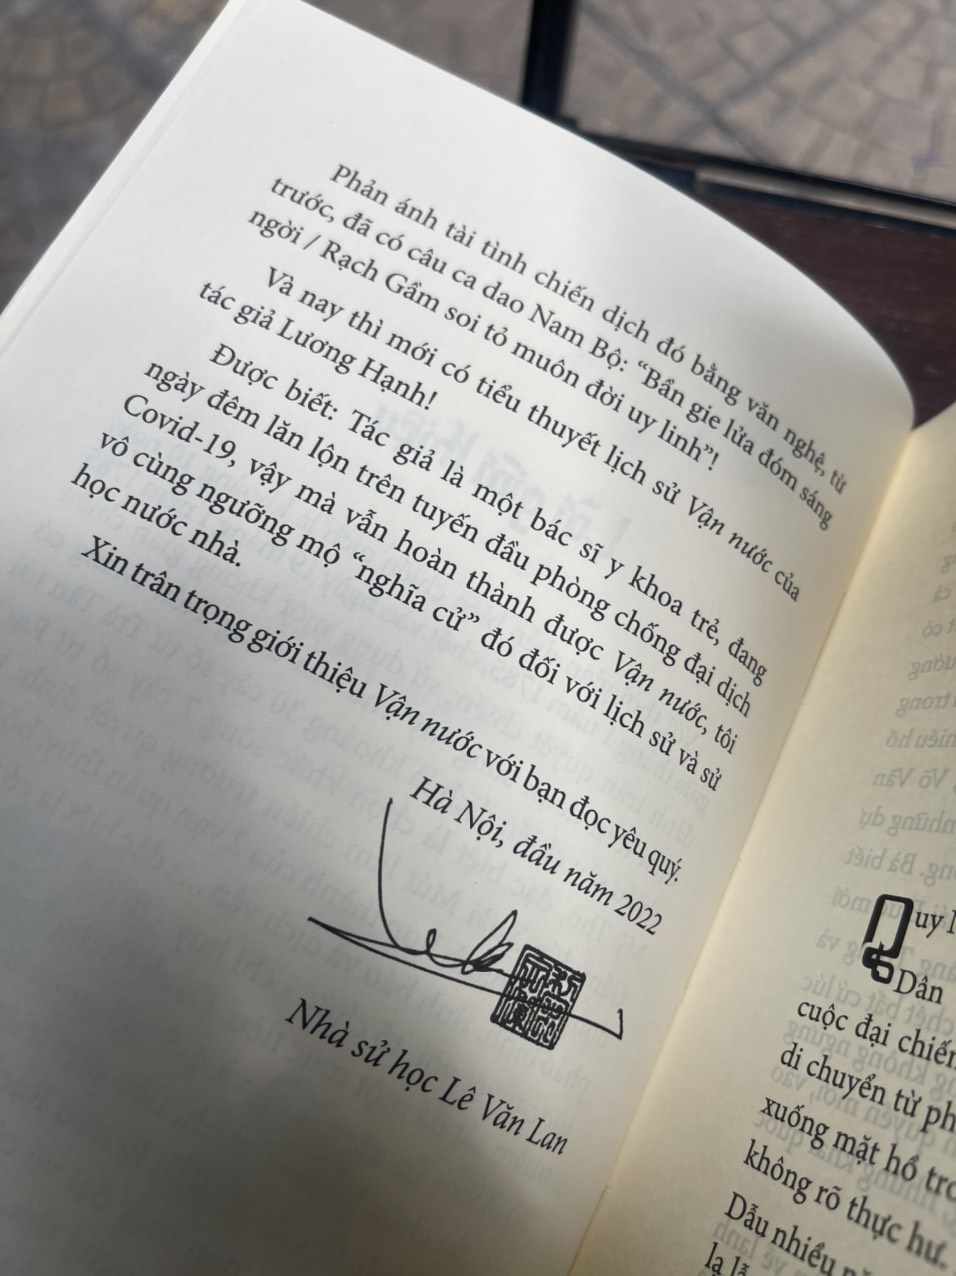 Phản ánh tài tình chiến dịch đó bằng văn nghệ, từ
trước, đã có câu ca dao Nam Bộ: “Bần gie lửa đóm sáng
ngời / Rạch Gầm soi tỏ muôn đời uy linh”!
Và nay thì mới có tiểu thuyết lịch sử Vận nước của
tác giả Lương Hạnh!
Được biết: Tác giả là một bác sĩ y khoa trẻ, đang
ngày đêm lăn lộn trên tuyến đầu phòng chống đại dịch
Covid-19, vậy mà vẫn hoàn thành được Vận nước, tôi
vô cùng ngưỡng mộ “nghĩa cử” đó đối với lịch sử và sử
học nước nhà.
Xin trân trọng giới thiệu Vận nước với bạn đọc yêu quý.
Hà Nội, đầu năm 2022
Nhà sử học Lê Văn Lan
Quy
Dân
cuộc đại chiến
di chuyển từ
xuống mặt hồ
không rõ thực hư.
Dẫu nhiều